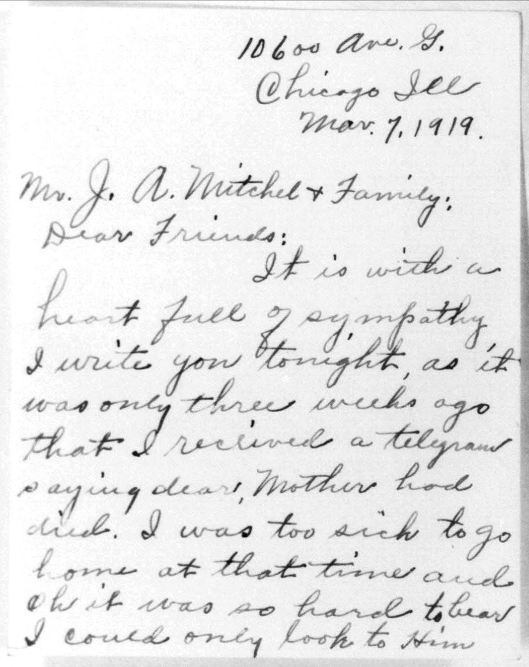 10600 Ave. G.
Chicago Ill
Mar. 7, 1919.
Mr. J. A. Mitchel & Family:
Dear Friends:
It is with a
heart full of sympathy
I write you tonight, as it
was only three weeks ago
that I recieved a telegram
saying dear, Mother had
died. I was too sick to go
home at that time and
Oh it was so hard to bear
I could only look to Him